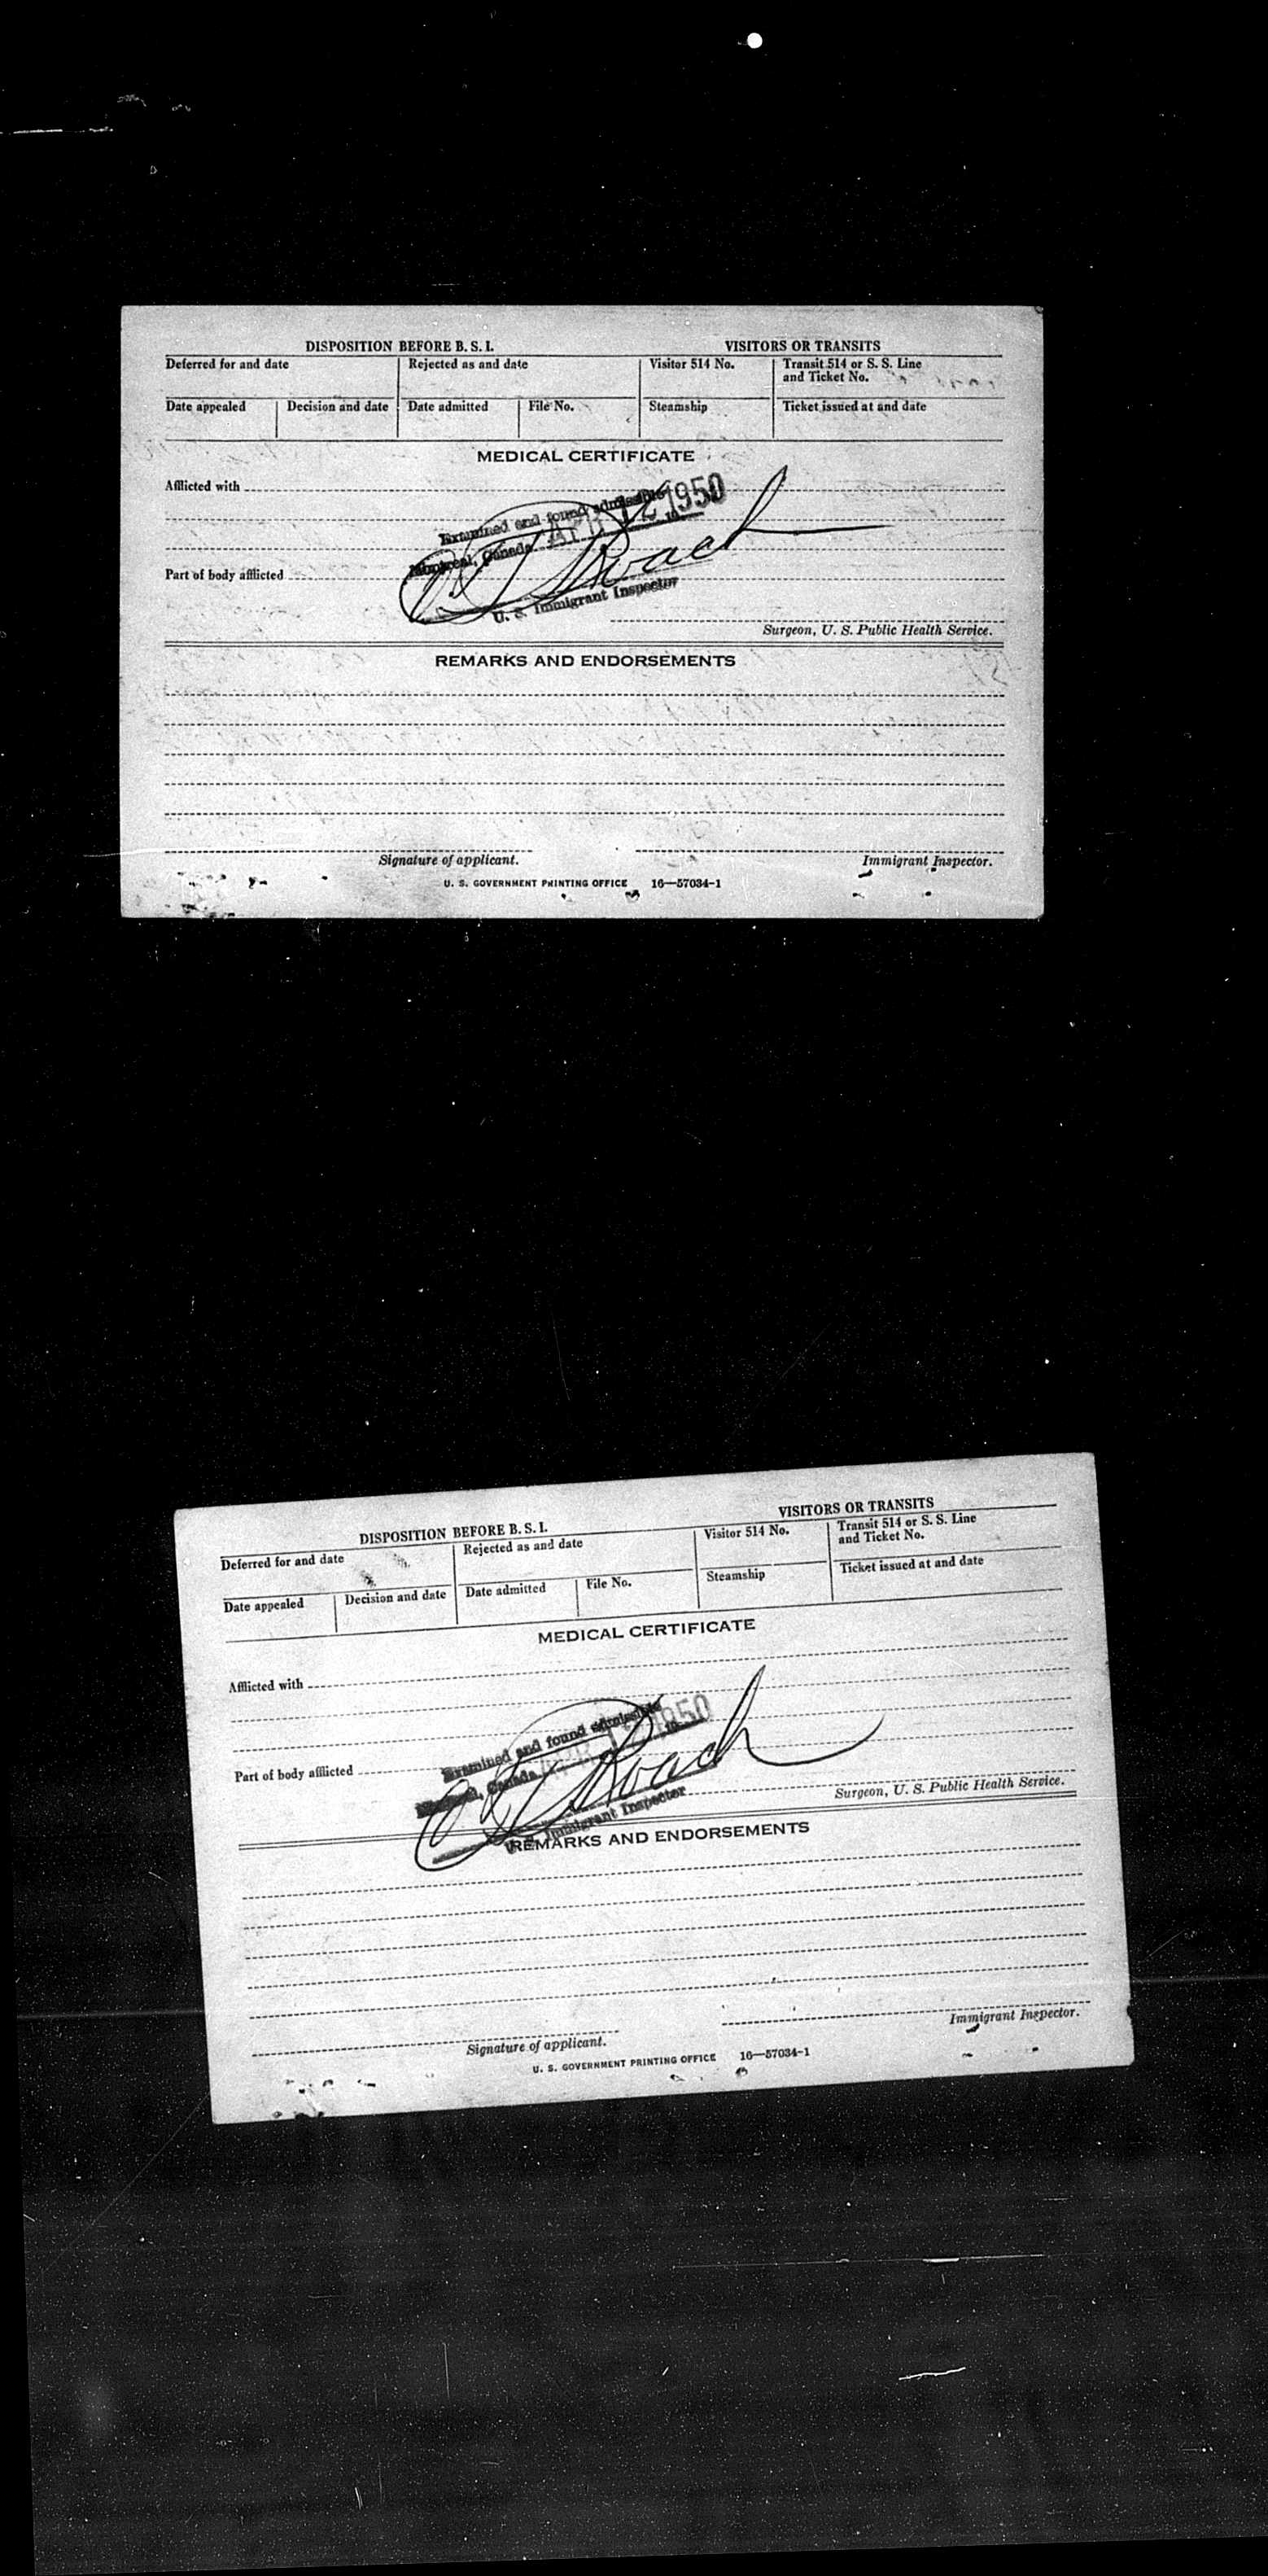 DISPOSITION BEFORE B. S. I. VISITORS OR TRANSITS
Deferred for and date Rejected as and date Visitor 514 No. Transit 514 or S. S. Line and Ticket No.
Date appealed Decision and date Date admitted File No. Steamship Ticket issued at and date
MEDICAL CERTIFICATE
Afflicted with
Examined and found admissible
Montreal, Canada APR 12 1950
Roach
Part of body afflicted
U. S. Immigrant Inspector
Surgeon, U. S. Public Health Service.
REMARKS AND ENDORSEMENTS
Signature of applicant. Immigrant Inspector.
U. S. GOVERNMENT PRINTING OFFICE 16—57034-1
DISPOSITION BEFORE B. S. I. VISITORS OR TRANSITS
Deferred for and date Rejected as and date Visitor 514 No. Transit 514 or S. S. Line and Ticket No.
Date appealed Decision and date Date admitted File No. Steamship Ticket issued at and date
MEDICAL CERTIFICATE
Afflicted with
Examined and found admissible
Montreal, Canada APR 1950
Roach
Part of body afflicted
U. S. Immigrant Inspector
Surgeon, U. S. Public Health Service.
REMARKS AND ENDORSEMENTS
Signature of applicant. Immigrant Inspector.
U. S. GOVERNMENT PRINTING OFFICE 16—57034-1